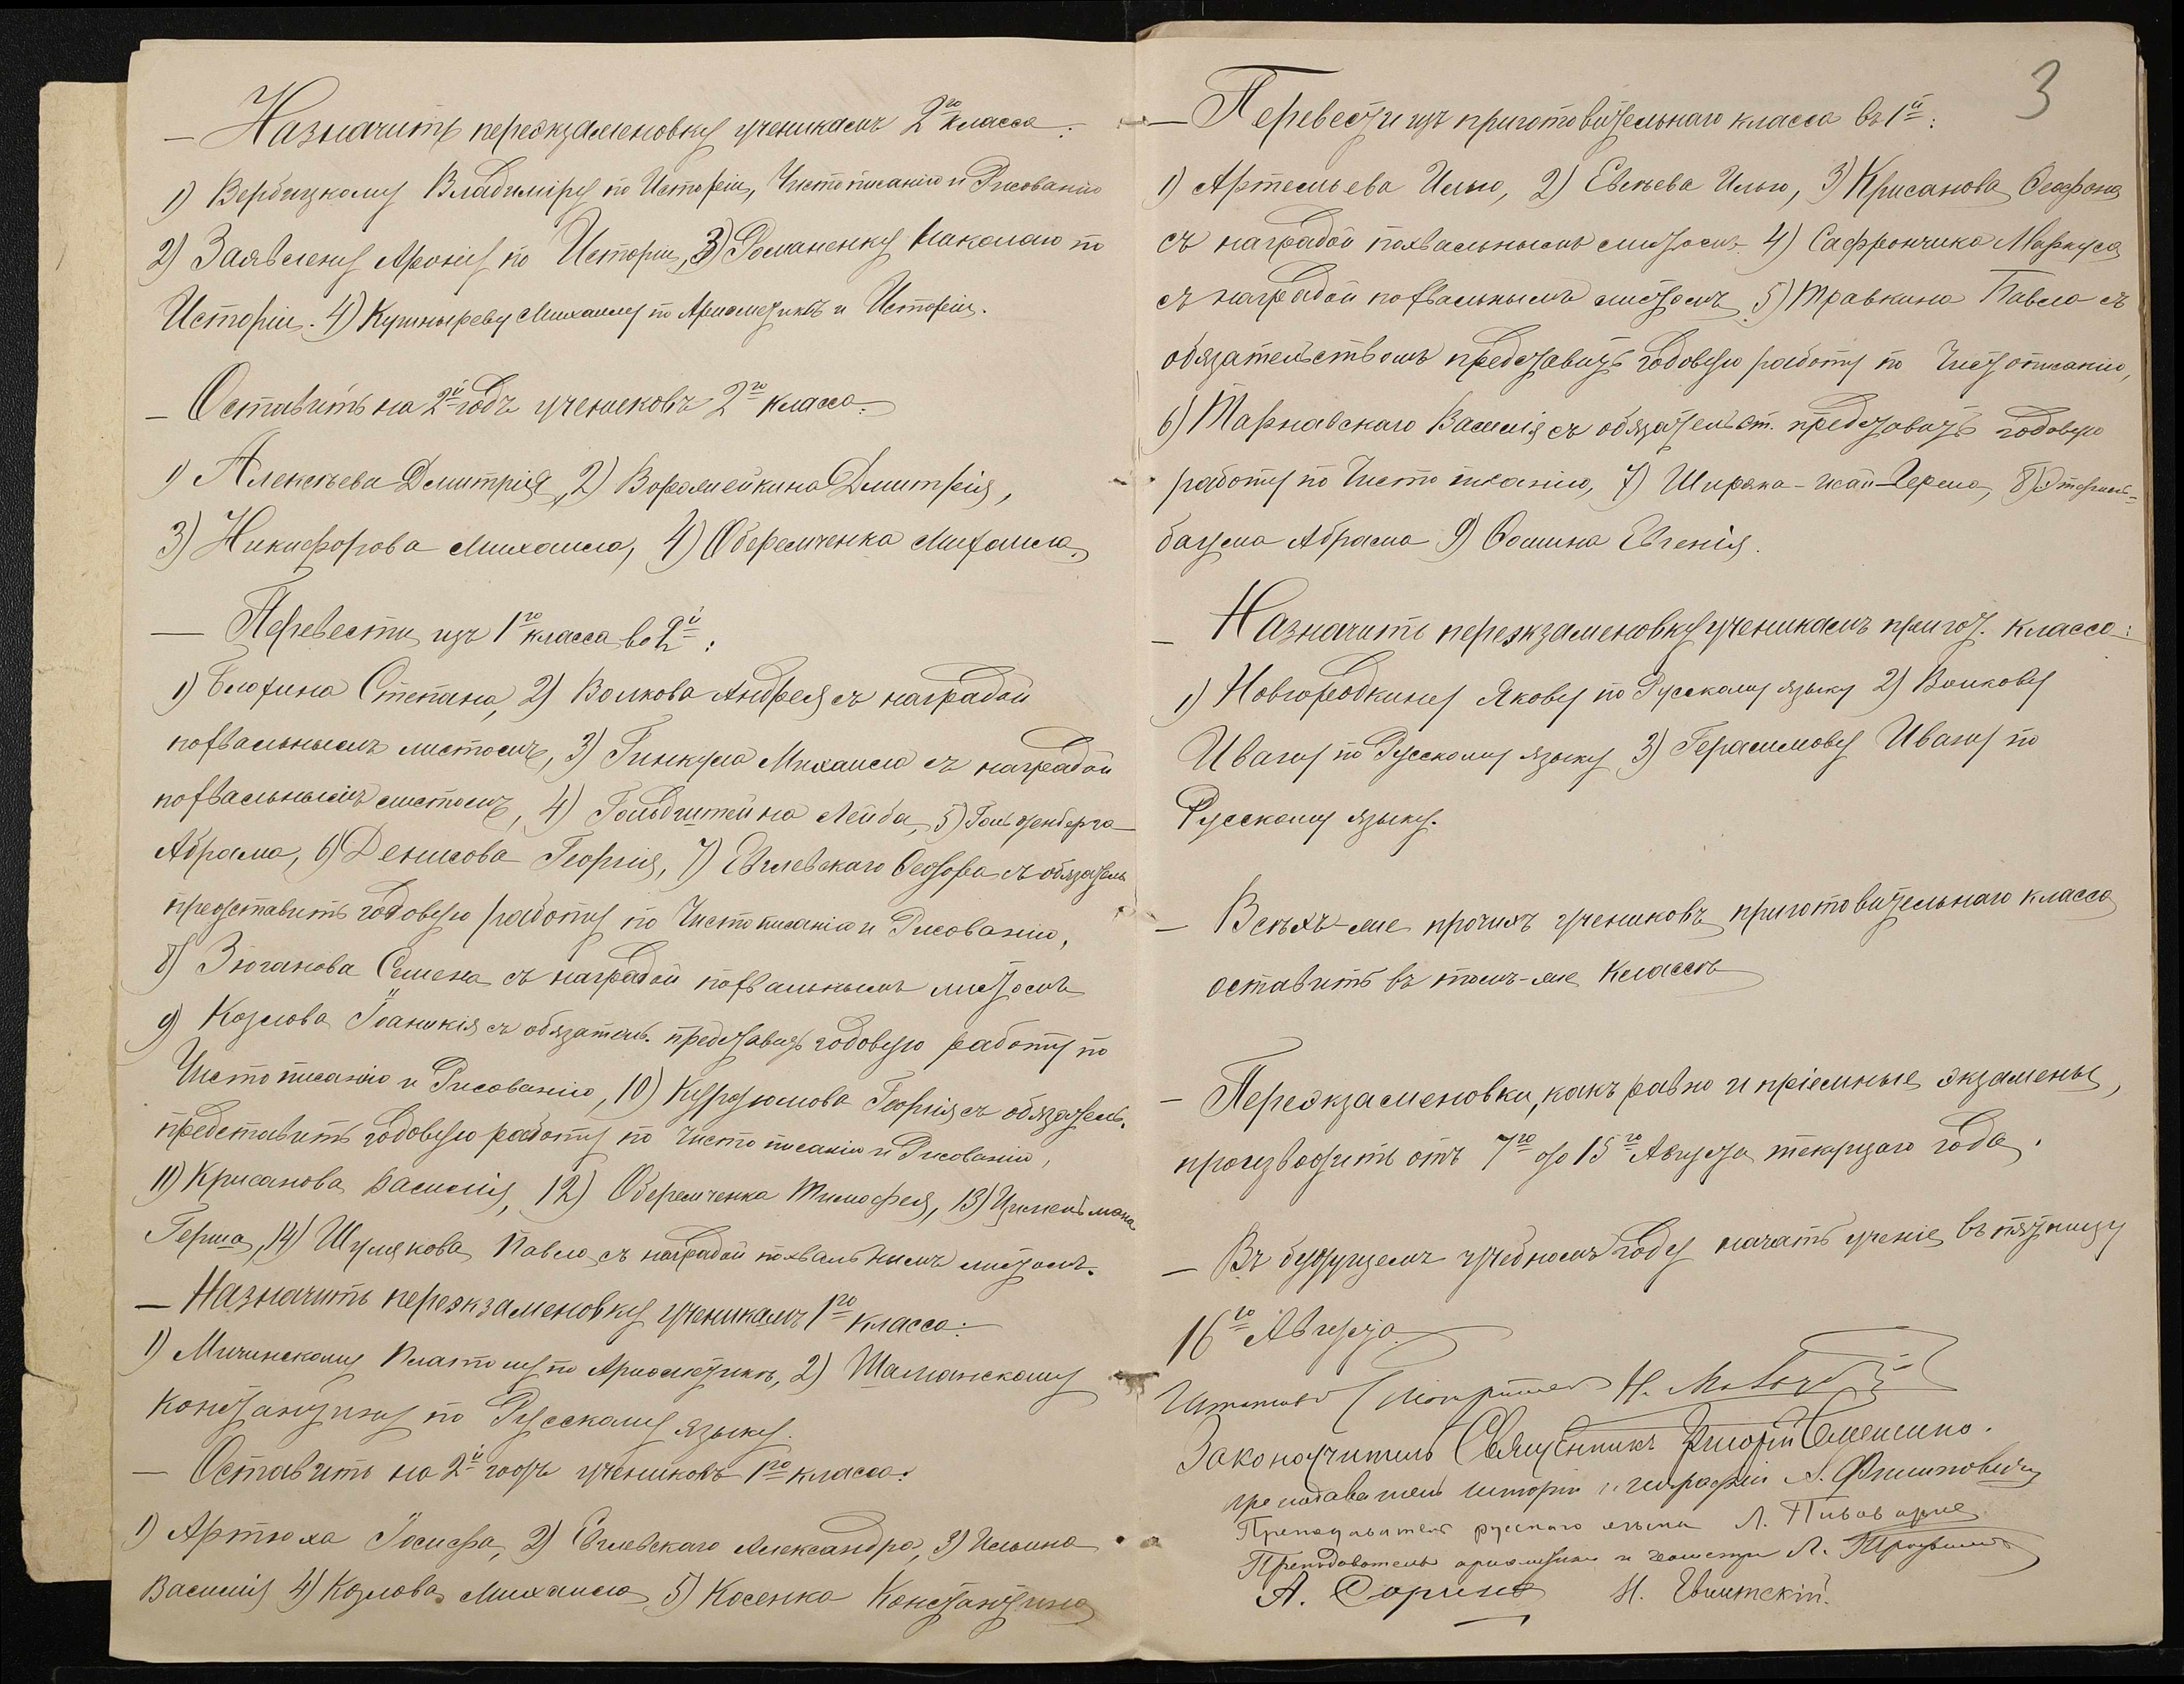 — Назначить переэкзаменовку ученикамъ 2го класса:
1) Вербицкому Владиміру по Исторіи, Чистописанію и Рисованію
2) Заявлену Арону по Исторіи, 3) Романенку Николаю по
Исторіи. 4) Кушныреву Михаилу по Ариѳметикѣ и Исторіи.
— Оставить на 2й годъ учениковъ 2го класса:
1) Алексѣева Дмитрія, 2) Ворамейкина Дмитрія,
3) Никифорова Михаила, 4) Оберемченка Михаила.
— Перевести изъ 1го класса во 2й:
1) Блохина Степана, 2) Волкова Андрея съ наградой
похвальнымъ листомъ, 3) Гинкула Михаила съ наградой
похвальнымъ листомъ, 4) Гольдштейна Лейба, 5) Гольденберга
Абрама, 6) Денисова Георгія, 7) Евлевскаго Ѳедора съ обязатель
представить годовую работу по Чистописанію и Рисованію,
8) Зюганова Семена съ наградой похвальнымъ листомъ
9) Козлова Іоаникія съ обязатель. представить годовую работу по
Чистописанію и Рисованію, 10) Курдюмова Георгія съ обязатель.
представить годовую работу по Чистописанію и Рисованію,
11) Крисанова Василія, 12) Оберемченка Тимофея, 13) Цимельмана
Герша, 14) Шулякова Павла съ наградой похвальнымъ листомъ.
— Назначить переэкзаменовку ученикамъ 1го класса:
1) Мичинскому Платону по Ариѳметикѣ, 2) Шаманскому
Константину по Русскому языку.
— Оставить на 2й годъ учениковъ 1го класса:
1) Артюха Іосифа, 2) Евлевскаго Александра, 3) Ильина
Василія 4) Козлова Михаила 5) Косенка Константина
3
— Перевести изъ приготовительнаго класса въ 1й:
1) Артемьева Илью, 2) Евсѣева Илью, 3) Крисанова Ѳеофана
съ наградой похвальнымъ листомъ. 4) Сафрончика Маркуса
съ наградой похвальнымъ листомъ, 5) Травкина Павла съ
обязательствомъ представить годовую работу по Чистописанію,
6) Тарнавскаго Василія съ обязательст. представить годовую
работу по Чистописанію, 7) Ширяка Герша, 8)
баума Абрама 9) Ѳомина Евгенія.
— Назначить переэкзаменовку ученикамъ пригот. класса:
1) Новгородкину Якову по Русскому языку 2) Волкову
Ивану по Русскому языку 3) Герасимову Ивану по
Русскому языку.
— Всѣхъ-же прочихъ учениковъ приготовительнаго класса
оставить въ томъ-же классѣ
— Переэкзаменовки, какъ равно и пріемные экзамены,
производить отъ 7го до 15го Августа текущаго года.
— Въ будущемъ учебномъ году начать ученіе въ пятницу
16го Августа.
Н.
Законоучитель Священникъ Григорій
Преподаватель исторіи и географіи А. Филиповичъ
Преподаватель русскаго языка Л. Пивоваровъ
Преподаватель ариѳметики и геометріи Л.
А. Соринъ Н.